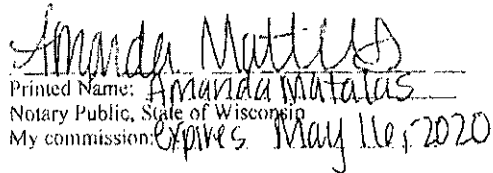 Amanda
Printed Name: Amanda Matalas
Notary Public, State of Wisconsin
My commission: expires May 16, 2020